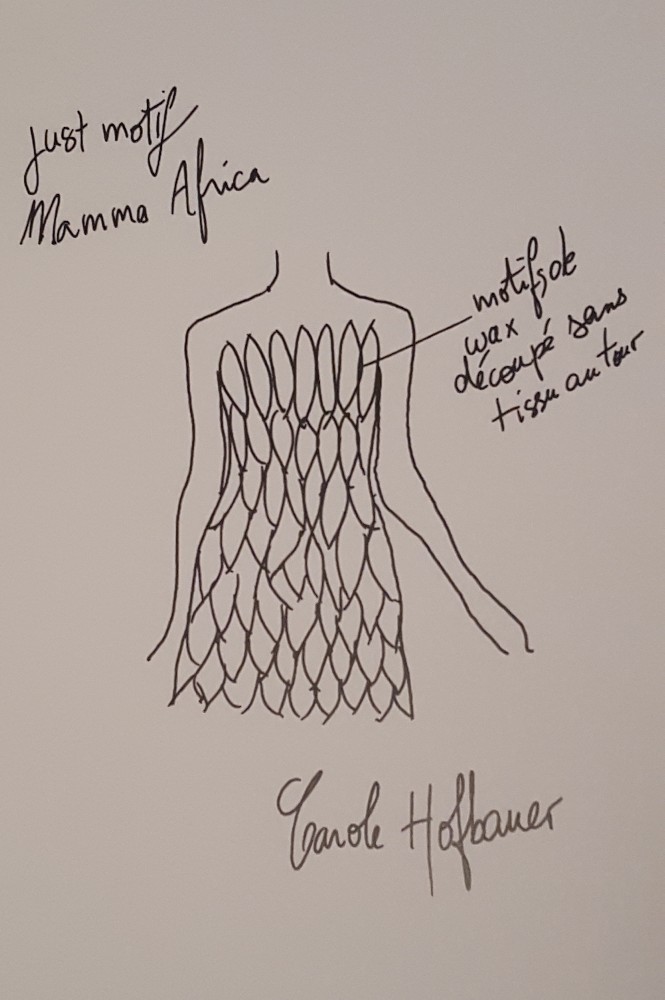 Just motif
Mamma Africa
motifs de
wax
découpé sans
tissu autour
Carole Hofbauer